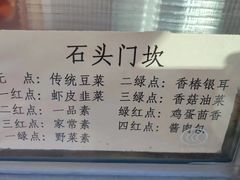 石头门坎
无 点：传统豆菜
一红点：虾皮韭菜
二红点：一品素
三红点：家常素
一绿点：野菜素
二绿点：香椿银耳
三绿点：香菇油菜
绿红点：鸡蛋茴香
四红点：酱肉包